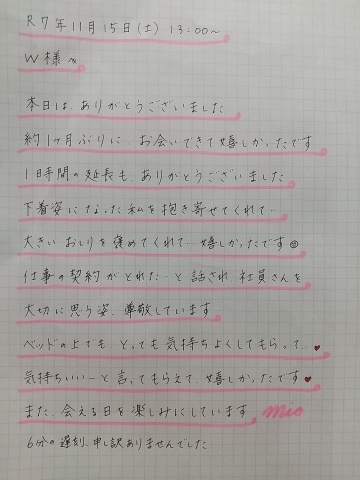 R7年11月15日(土) 13:00~
W様へ
本日は、ありがとうございました
約1ヶ月ぶりに、お会いできて嬉しかったです
1日時間の延長も、ありがとうございました
下着姿になった私を抱き寄せてくれて…
大きいおしりを褒めてくれて…嬉しかったです☺
仕事の契約がとれた…と話され社員さんを
大切に思う姿、尊敬しています
ベッドの上でも、とっても気持ちよくしてもらって…♥
気持ちいい…と言ってもらえて、嬉しかったです♥
また、会える日を楽しみにしています Mio
6分の遅刻、申し訳ありませんでした